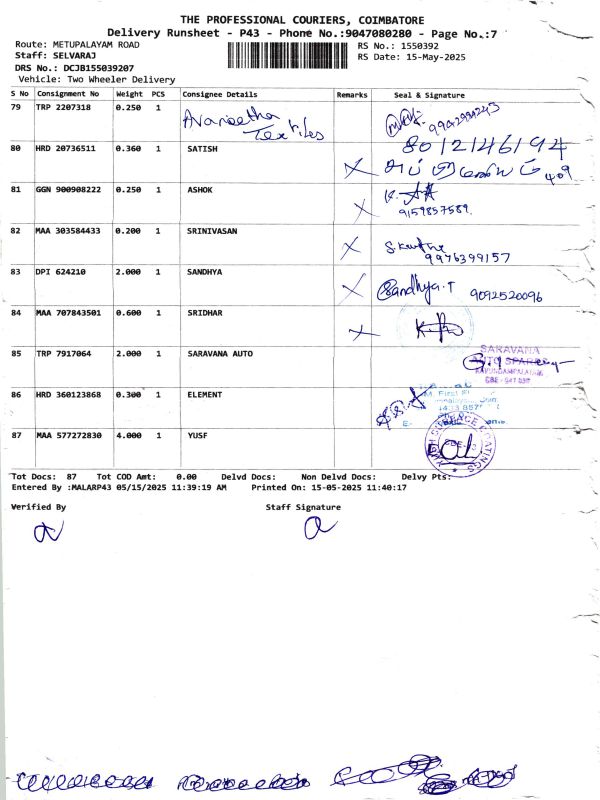 THE PROFESSIONAL COURIERS, COIMBATORE
Delivery Runsheet - P43 - Phone No.:9047080280 - Page No.:7
Route: METUPALAYAM ROAD RS No.: 1550392
Staff: SELVARAJ RS Date: 15-May-2025
DRS No.: DCJB155039207
Vehicle: Two Wheeler Delivery
S No Consignment No Weight PCS Consignee Details Remarks Seal & Signature
79 TRP 2207318 0.250 1 Textiles
80 HRD 20736511 0.360 1 SATISH 8012146194
81 GGN 900908222 0.250 1 ASHOK 9159857589
82 MAA 303584433 0.200 1 SRINIVASAN 9976399157
83 DPI 624210 2.000 1 SANDHYA Sandhya.T 9092520096
84 MAA 707843501 0.600 1 SRIDHAR
85 TRP 7917064 2.000 1 SARAVANA AUTO SARAVANA AUTO SPARES
86 HRD 360123868 0.300 1 ELEMENT
87 MAA 577272830 4.000 1 YUSF
Tot Docs: 87 Tot COD Amt: 0.00 Delvd Docs: Non Delvd Docs: Delvy Pts:
Entered By :MALARP43 05/15/2025 11:39:19 AM Printed On: 15-05-2025 11:40:17
Verified By Staff Signature